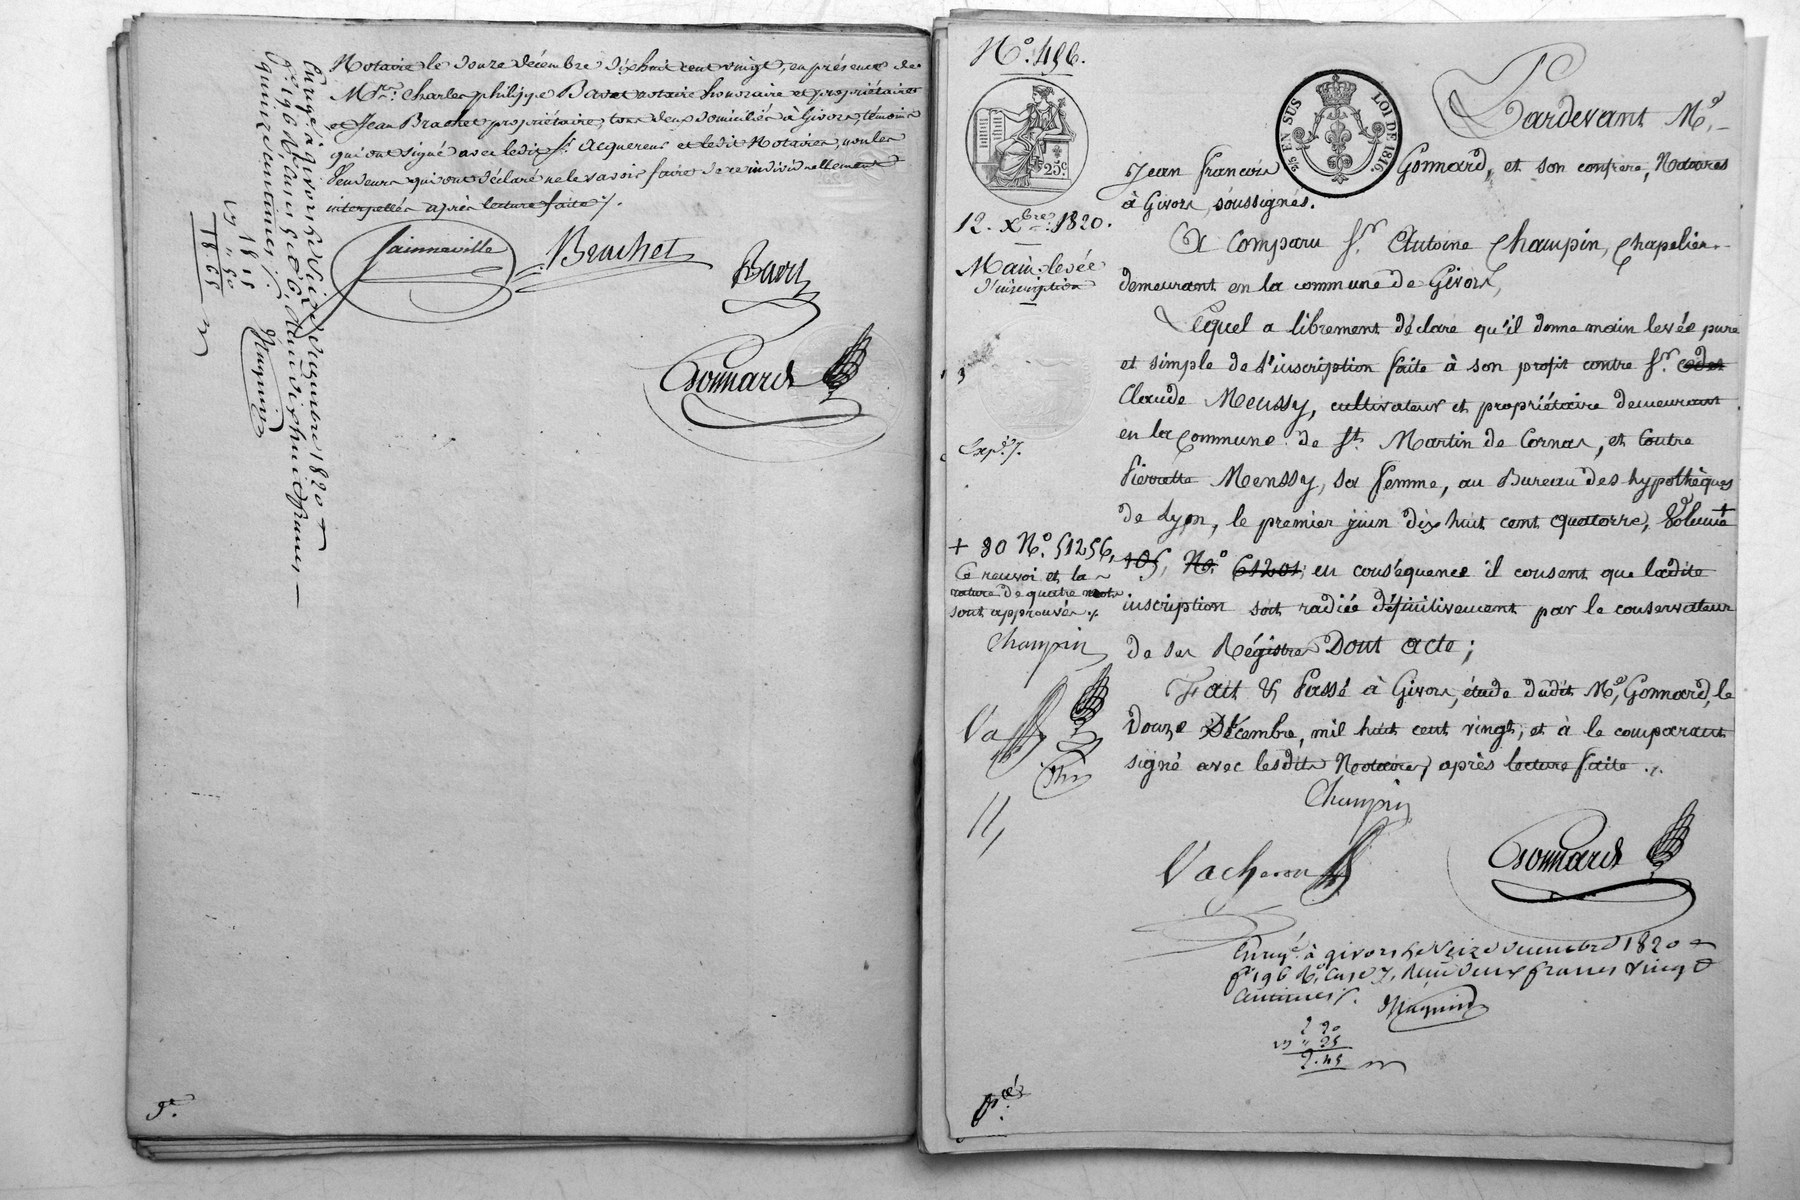 Notaire le douze décembre dixhuit cent vingt, en présence de
Mrs. Charles philippe Bavet notaire honoraire et propriétaires
et Jean Brachet propriétaire, tous deux domiciliés à Givors témoins
qui ont signé avec ledit Sr. Acquereur et ledit Notaire, non les
Vendeurs qui ont déclaré ne le savoir faire de ce individuellement
interpellés après lecture faite ./.
Jainneville
Brachet
Gonnard
18 15
18.65
N.o 496.
25c
25c EN SUS
LOI DE 1816.
Pardevant Me.
Jean francois Gonnard, et son confrere, Notaires
à Givors, soussignés.
12. Xbre 1820.
Main-levée
d'inscription
A Comparu Sr. Antoine Chaupin, Chapelier
demeurant en la commune de Givors,
Lequel a librement déclaré qu'il donne main levée pure
et simple de l'inscription faite à son profit contre Sr.
Claude Meussy, cultivateur et propriétaire demeurant
en la Commune de St. Martin de Cornas, et Contre
Pierrette Meussy, sa femme, au Bureau des hypothèques
de Lyon, le premier juin dix huit cent quatorze, Volume +
105, No. 61201, en conséquence il consent que ladite
inscription soit radiée définitivement par le conservateur
de ses Régistres Dont acte;
Fait & Passé à Givors, étude dudit Me. Gonnard, le
Douze Décembre, mil huit cent vingt, et à le comparant
signé avec lesdits Notaires, après lecture faite ./.
Expé.
+ 80 N.o 51256.
Ce renvoi et la
rature de quatre mots
sont approuvés ./.
Chaupin
Chaupin
Vacheron
Gonnard
Enreg.é à givors le treize decembre 1820
f.o 196 R.o Case 7, Reçu deux francs vingt
Centimes ./.
2 20
2.45